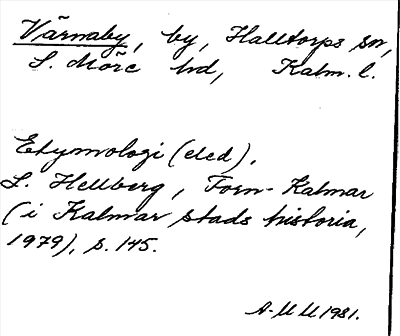 Värnaby, by, Halltorps sn,
S. Möre hd, Kalm. l.
Etymologi (eled).
L. Hellberg, Forn-Kalmar
(i Kalmar stads historia,
1979), s. 145.
A-M M 1981.